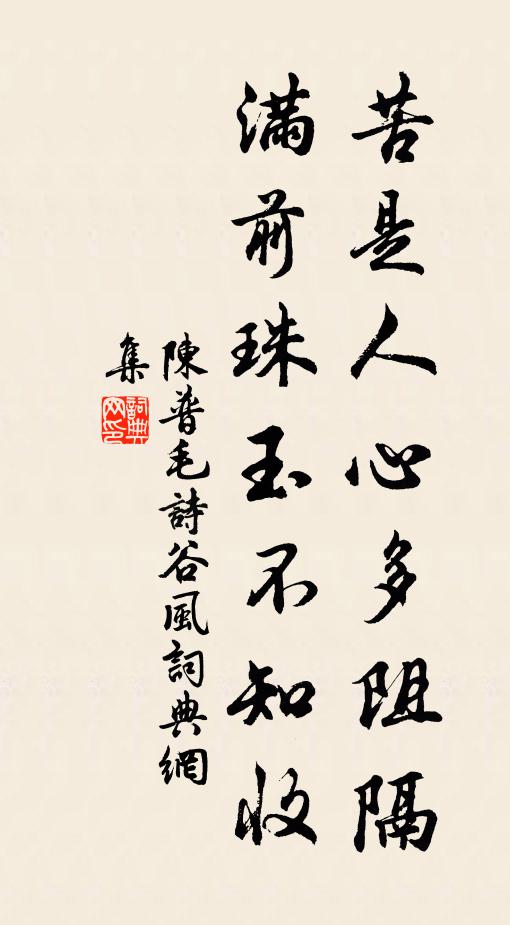 苦是人心多阻隔
滿前珠玉不知收
陳普毛詩谷風詞典網
集
詞典网印